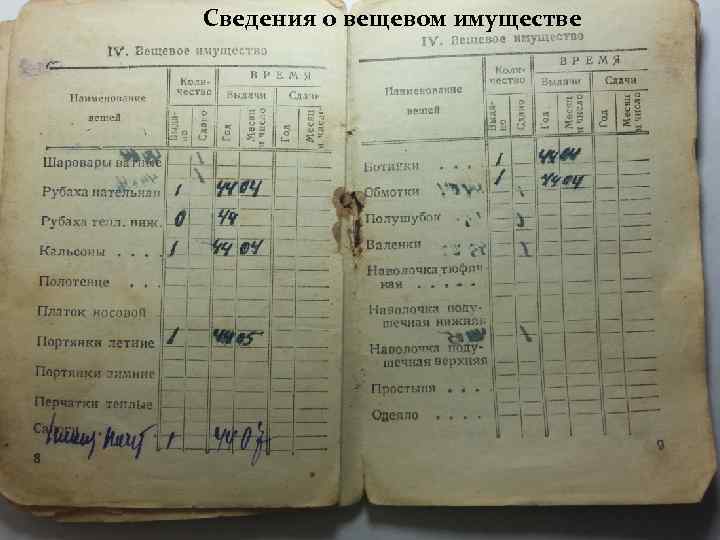 Сведения о вещевом имуществе
IV. Вещевое имущество
Наименование вещей
Коли-
чество
ВРЕМЯ
Выдачи
Сдачи
Выда-
но
Сдано
Год
Месяц
и число
Год
Месяц
и число
Шаровары ватные 1
Рубаха нательная 1 44 04
Рубаха тепл. ниж. 0 44
Кальсоны . . . . 1 44 04
Полотенце . . .
Платок носовой
Портянки летние 1 44 05
Портянки зимние
Перчатки теплые
1 44 07
8
IV. Вещевое имущество
Наименование
вещей
Коли-
чество
ВРЕМЯ
Выдачи
Сдачи
Выда-
но
Сдано
Год
Месяц
и число
Год
Месяц
и число
Ботинки . . . . 1 44 04
Обмотки 1 44 04
Полушубок
Валенки
Наволочка тюфяч-
ная . . . . .
Наволочка поду-
шечная нижняя
Наволочка поду-
шечная верхняя
Простыня . . . .
Одеяло . . . .
9